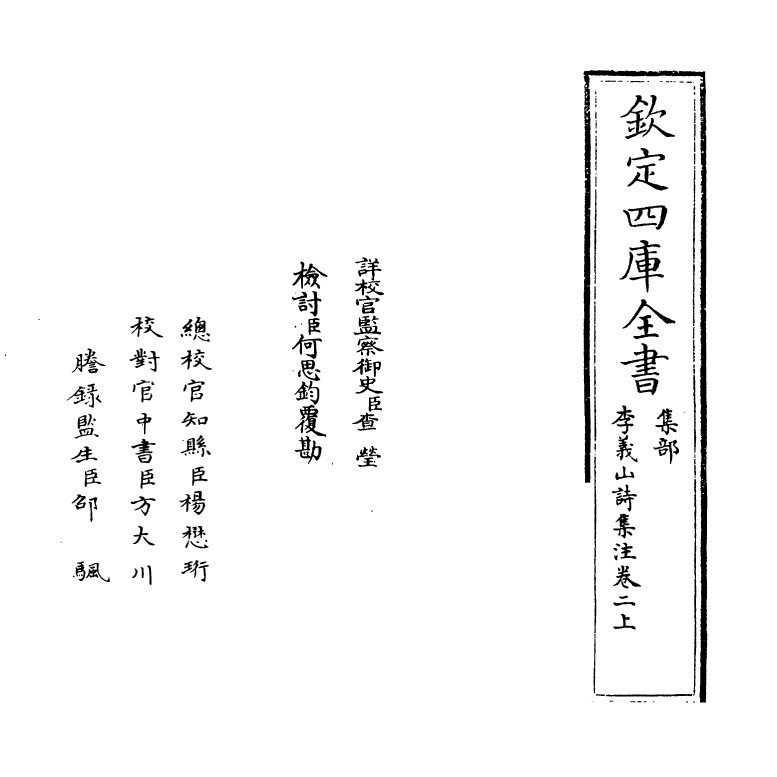 欽定四庫全書
集部
李義山詩集注卷二上
詳校官監察御史臣查瑩
檢討臣何思鈞覆勘
總校官知縣臣楊懋珩
校對官中書臣方大川
謄錄監生臣邵颿